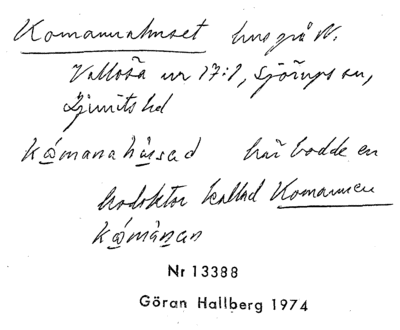 Komannahuset hus på N.
Vallösa nr 17:1, Sjörups sn,
Ljunits hd
kåmanahused här bodde en
kodoktor kallad Komannen
kåmånan
Nr 13388
Göran Hallberg 1974